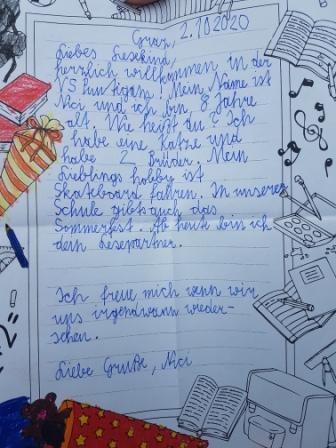 Graz, 2.10.2020
Liebes Lesekind,
herzlich willkommen in der
VS Puntigam! Mein Name ist
Nici und ich bin 8 Jahre
alt. Wie heißt du? Ich
habe eine Katze und
habe 2 Brüder. Mein
Lieblings hobby ist
Skateboard fahren. In unserer
Schule gibts auch das
Sommerfest. Ab heute bin ich
dein Lesepartner.
Ich freue mich wenn wir
uns irgendwann wieder-
sehen.
Liebe Grüße, Nici